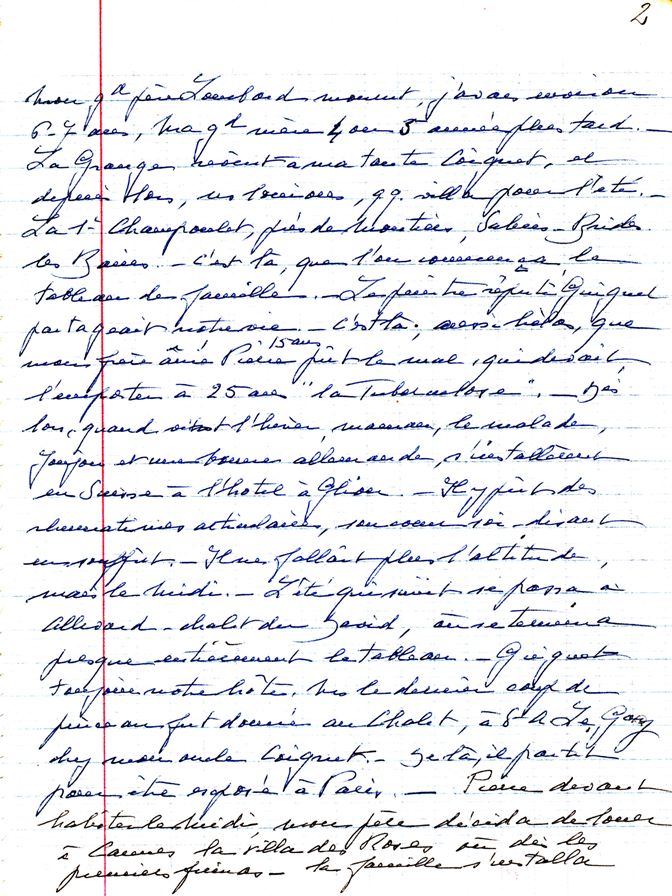 2
mon gd père Lombard mourut, j'avais environ
6-7 ans, ma gd mère 4 ou 5 années plus tard. —
La Grange revient a ma tante Coignet, et
depuis lors, ns louions, qq. villa pour l'été. —
La 1e Champoulet, près de Moutiers, Salins-Brides
les Bains. — C'est là, que l'on commença le
tableau de famille. — Le peintre réputé Guiguet
partageait notre vie. — C'est là, aussi hélas, que
mon frère âiné Pierre 15 ans prit le mal, qui devait
l'emporter à 25 ans "la Tuberculose". — Dès
lors, quand vint l'hiver, maman, le malade,
Joujou et une bonne allemande, s'installèrent
en Suisse à l'hotel à Glion. — Il y prit des
rhumatismes articulaires, son coeur soi-disant
en souffrit. — Il ne fallait plus l'altitude,
mais le midi. — L'été qui suivit se passa à
Allevard - chalet du David, où se termina
presque entièrement le tableau. — Guiguet
toujours notre hôte. Ms le dernier coup de
pinceau fut donné au Chalet, à St A
chez mon oncle Coignet. — De là, il partit
pour être exposé à Paris. — Pierre devant
habiter le midi, mon père décida de louer
à Cannes la villa des Roses où dès les
premiers frimas — la famille s'installa